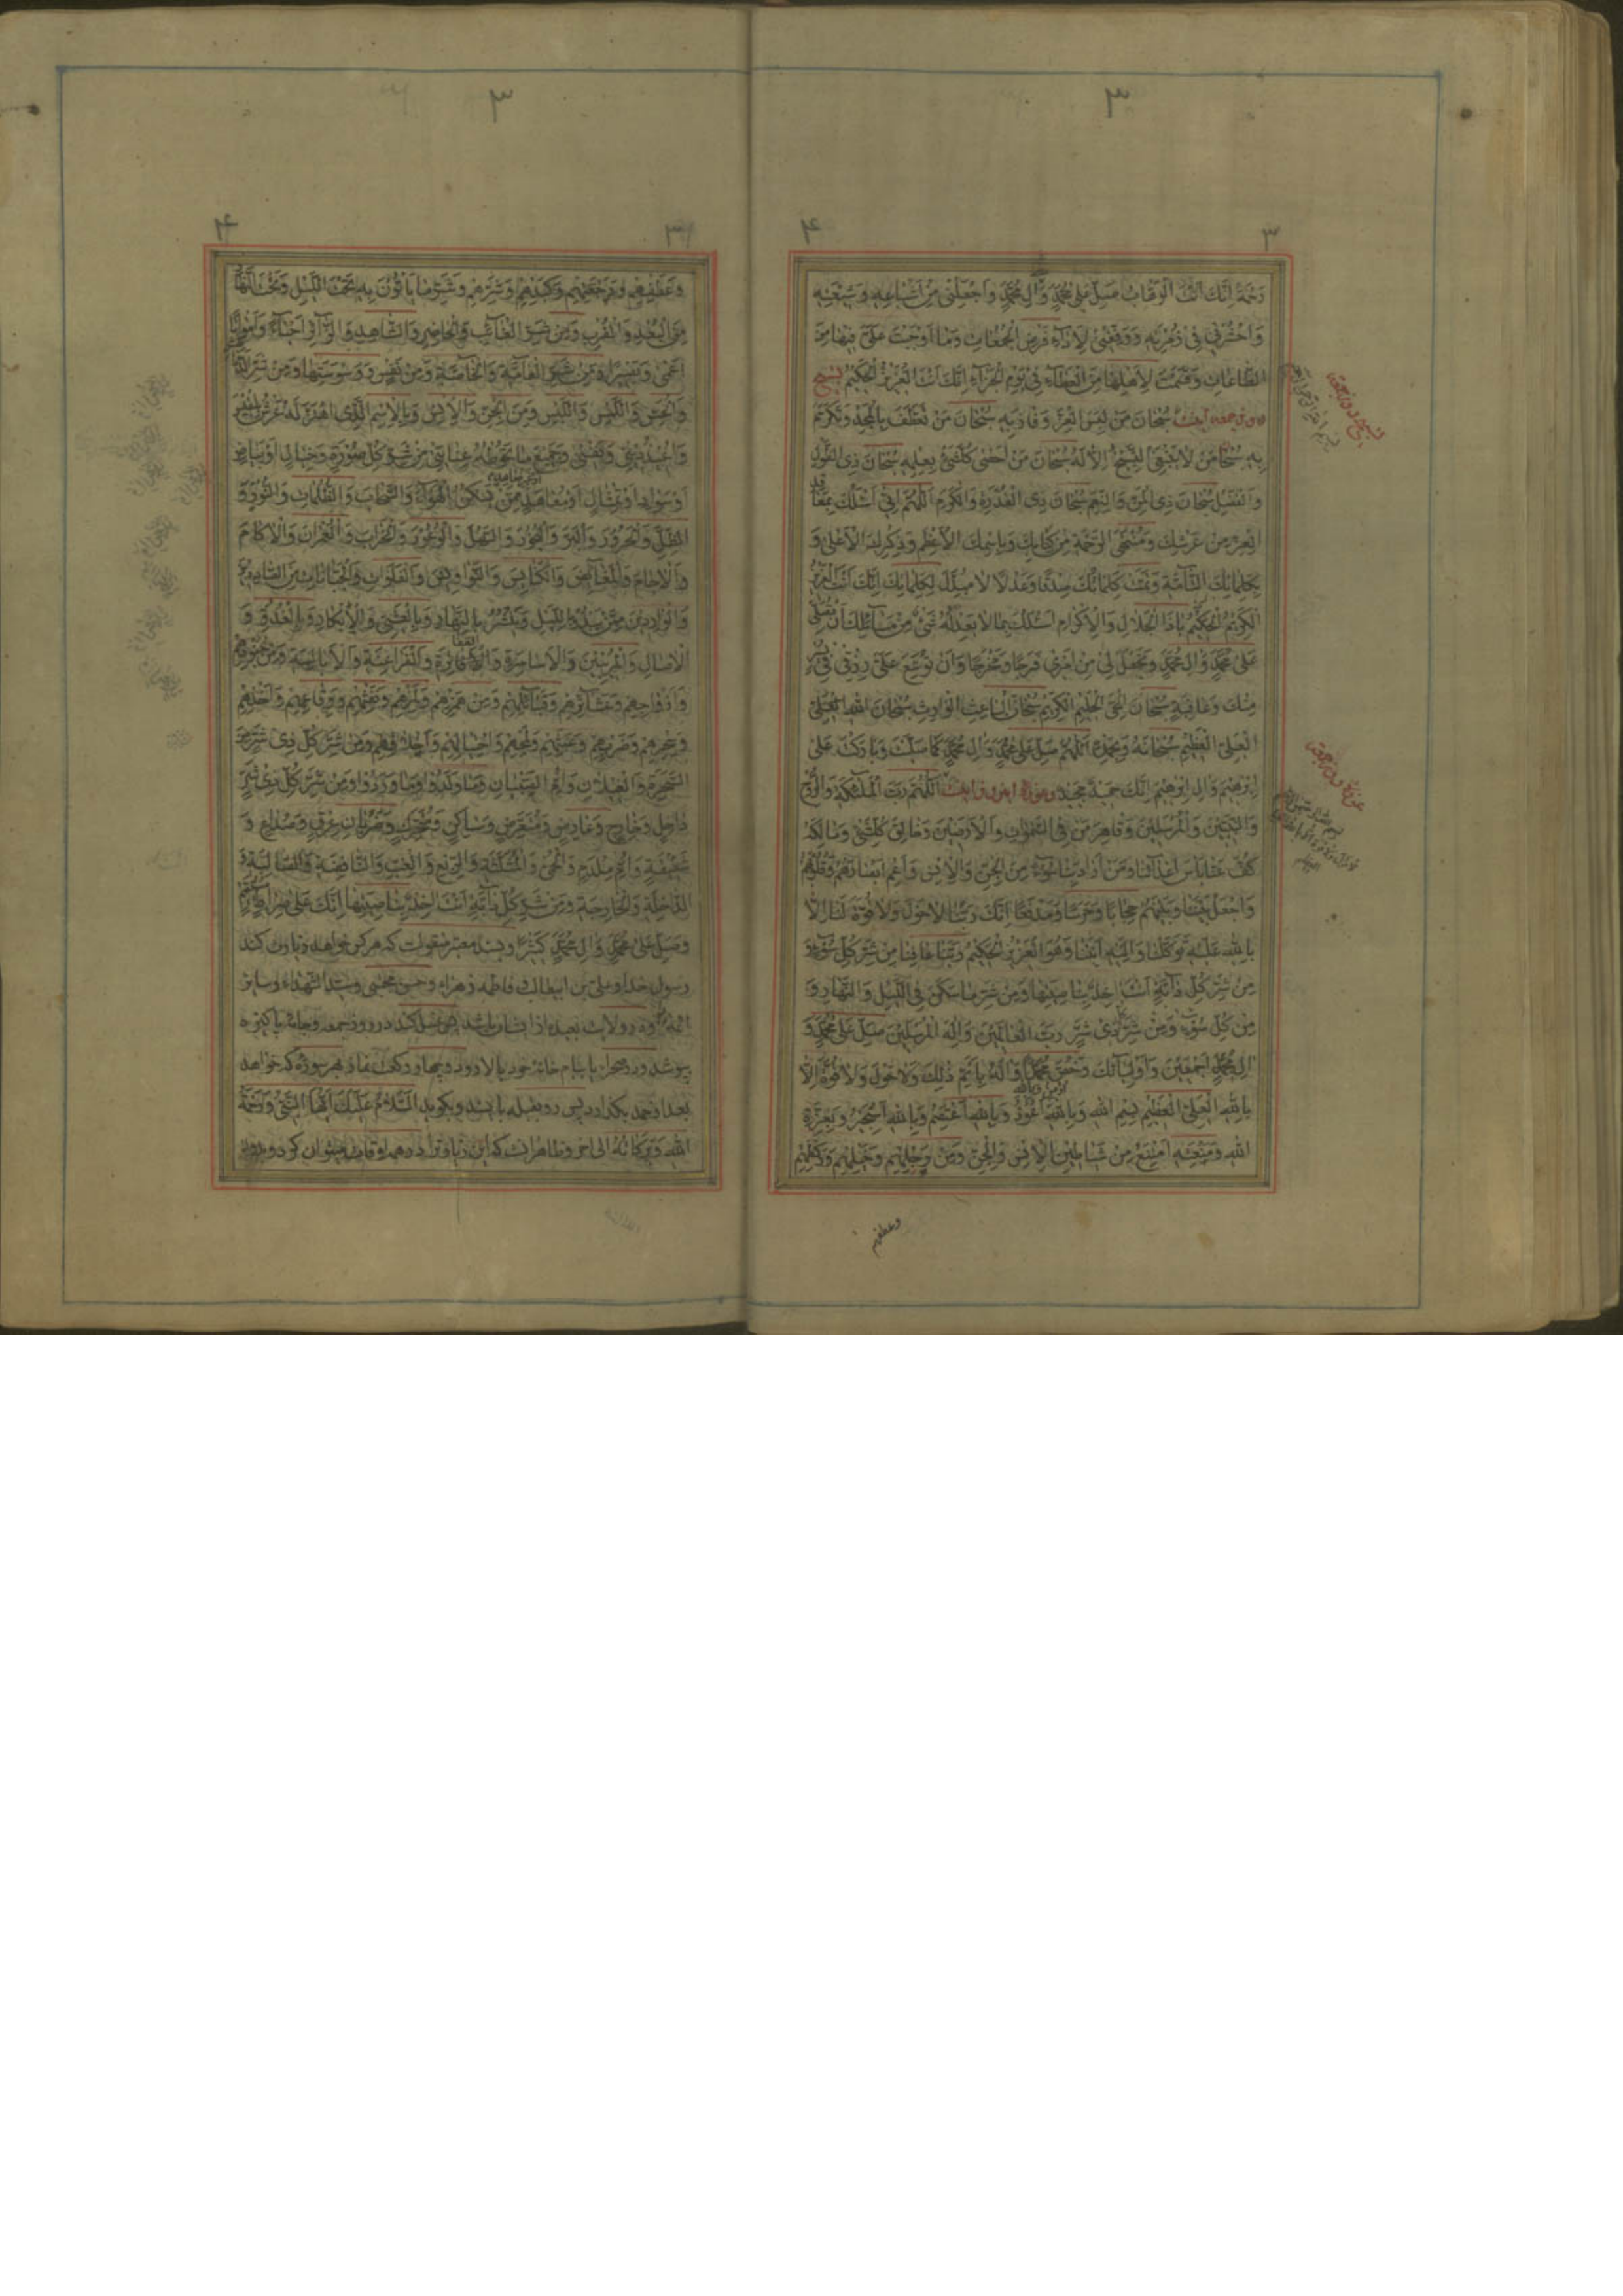 ٣
٣
٤
رحمة انك انت الوهاب صل على محمد وآل محمد واجعلني من اشياعه وشيعته
واحشرني في زمرته ووفقني لاداء فرض الجمعات وما اوجبت علي فيها من
الطاعات وقسمت لاهلها من العطاء في يوم الجزاء انك انت العزيز الحكيم تسبيح
روز جمعه اينست سبحان من لبس العز وفاز به سبحان من تعطف بالمجد وتكرم
به سبحان من لا ينبغي التسبيح الا له سبحان من احصى كل شيء بعلمه سبحان ذي الطول
والفضل سبحان ذي المن والنعم سبحان ذي القدرة والكرم اللهم اني اسئلك بمعاقد
العز من عرشك ومنتهى الرحمة من كتابك وباسمك الاعظم وذكرك الاعلى و
بكلماتك التامة وتمت كلماتك صدقا وعدلا لا مبدل لكلماتك انك انت العزيز
الكريم الحكيم يا ذا الجلال والاكرام اسئلك بما لا يعدله شيء من مسائلك ان تصلي
على محمد وال محمد وتجعل لي من امري فرجا ومخرجا وان توسع علي رزقي في
منك وعافية سبحان الحي الحليم الكريم سبحان الباعث الوارث سبحان الله العلي
العلي العظيم سبحانه وبحمده اللهم صل على محمد وال محمد كما صليت وباركت على
ابرهيم وال ابرهيم انك حميد مجيد وعوذة اينست اللهم رب الملئكة والروح
والنبيين والمرسلين وقاهر من في السموات والارضين وخالق كل شيء ومالكه
كف عنا باس اعدائنا ومن اراد بنا سوءا من الجن والانس واعم ابصارهم وقلوبهم
واجعل بيننا وبينهم حجابا وحرسا ومدفعا انك ربنا لا حول ولا قوة لنا الا
بالله عليه توكلنا واليه انبنا وهو العزيز الحكيم ربنا عافنا من شر كل سوء و
من شر كل دابة انت اخذ بناصيتها ومن شر ما سكن في الليل والنهار و
من كل سوء ومن شر كل ذي شر رب العالمين واله المرسلين صل على محمد و
ال محمد اجمعين واوليائك وخص محمدا واله باتم ذلك ولا حول ولا قوة الا
بالله العلي العظيم بسم الله وبالله اعوذ وبالله اعتصم وبالله استجير وبعزة
الله ومنعته امتنع من شياطين الانس والجن ومن رجلهم وخيلهم وركضهم
وعطفهم
٣
٤
وعطفهم ورجعتهم وكيدهم وشرهم وشر ما ياتون به تحت الليل وتحت النهار
من البعد والقرب ومن شر الغائب والحاضر والشاهد والزائر احياء وامواتا
اعمى وبصيرا ومن شر العامة والخاصة ومن نفس ووسوستها ومن شر
والحس واللمس واللبس ومن الجن والانس وبالاسم الذي اهتز له عرش بلقيس
واعيذ ديني ونفسي وجميع ما تحوطه عنايتي من شر كل صورة وخيال او بياض
او سواد او تمثال او معاهد ممن يسكن الهواء والسحاب والظلمات والنور و
الظل والحرور والبر والبحور والسهل والوعور والخراب والعمران والاكام
والاجام والمغايض والكنايس والنواويس والفلوات والجبانات من الصادرين
والواردين ممن يبدو بالليل وينتشر بالنهار وبالعشي والابكار وبالغدو و
الاصال والمريبين والاسامرة والافاترة والفراعنة والابالسة ومن جنودهم
وازواجهم وعشائرهم وقبائلهم ومن همزهم ولمزهم ونفثهم ووقاعهم واخذهم
وسحرهم وضربهم وعبثهم ولمحهم واحتيالهم واخلاقهم ومن شر كل ذي شر من
السحرة والغيلان وام الصبيان وما ولدوا وما وردوا ومن شر كل ذي شر
داخل وخارج وعارض ومتعرض وساكن ومتحرك وضربان عرق وصداع و
شقيقة وام ملدم والحمى والمثلثة والربع والغب والنافضة والصالبة و
الداخلة والخارجة ومن شر كل دابة انت اخذ بناصيتها انك على صراط مستقيم
وصل على محمد وال محمد كثيرا وبسند معتبر منقولست كه هركه خواهد زيارت كند
رسول خدا وعلي بن ابيطالب وفاطمه زهراء وحسن مجتبى وسيد الشهداء وساير
ائمه را ودر ولايت بعيد از ايشان باشد پس غسل كند در روز جمعه وجامه پاكيزه
بپوشد ودر صحرا يا ببام خانه خود بالا رود وچهار ركعت نماز بهر سوره كه خواهد
بعد از حمد بگذارد پس رو بقبله بايستد وبگويد السلام عليك ايها النبي ورحمة
الله وبركاته الى اخر وظاهر انست كه اين زيارت را در همه اوقات ميتوان كرد